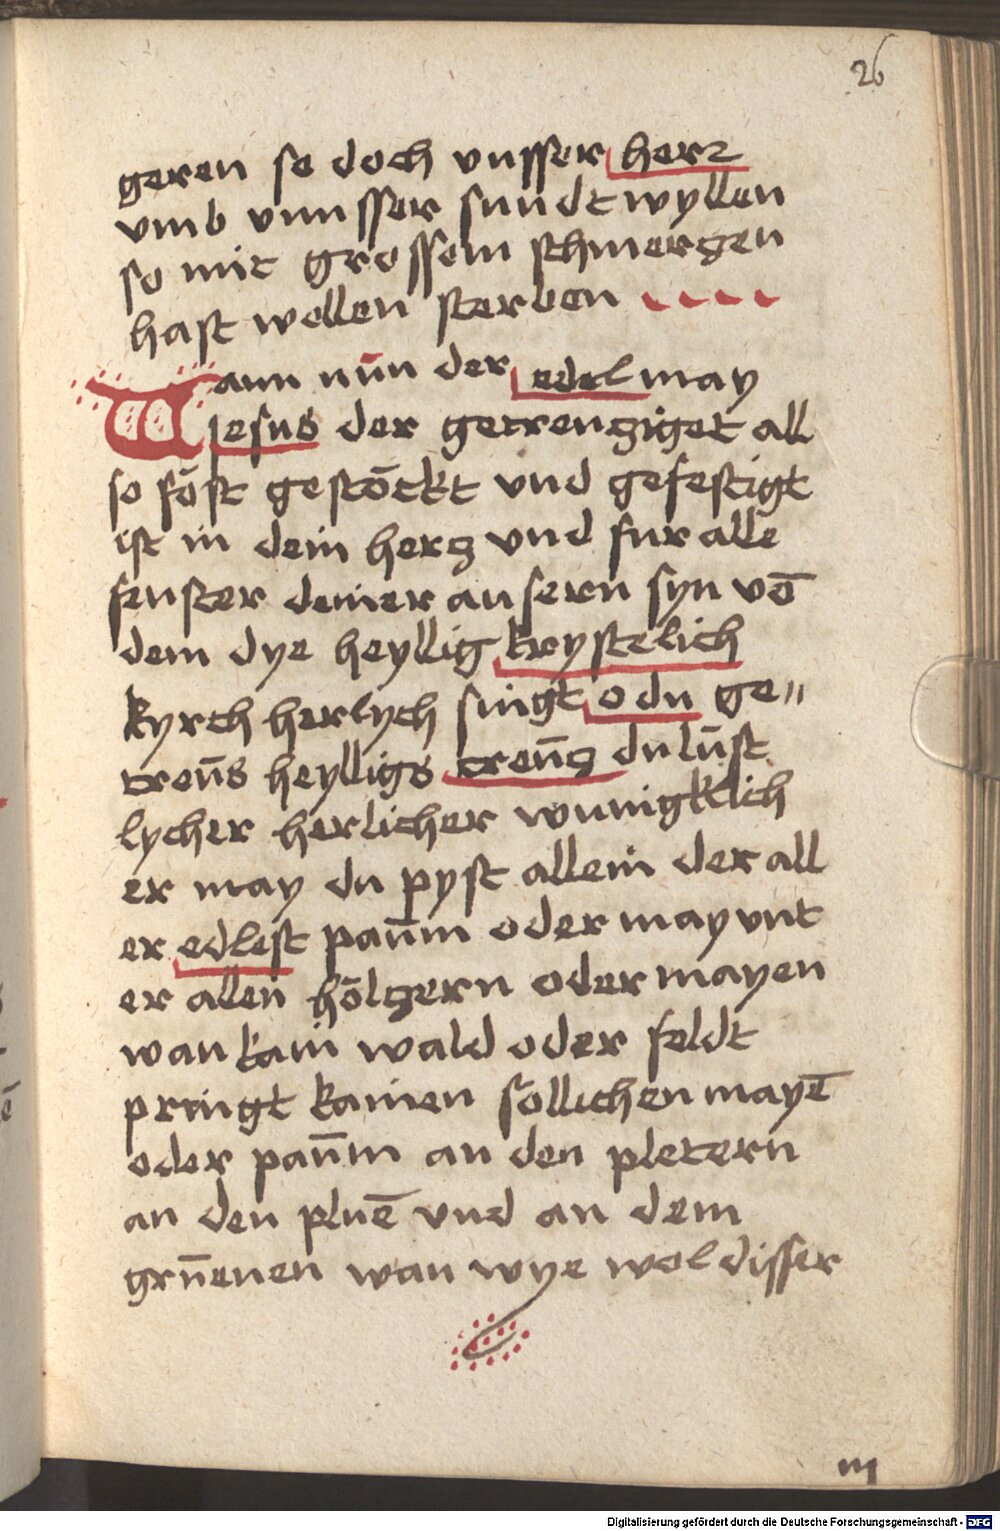 26
geren se doch vnsser herr
vmb vnnsser sundt wyllen
so mit grossem schmerczen
hast wollen sterben
Wann nūn der edel may
jesus der gecreucziget all
so fōst gestōckt vnd gefestigt
ist in dein hercz vnd fur alle
fenster deiner ausern syn vō
dem dye heyllig krystelich
kyrch herlych singt o du ge〃
treūs heylligs creūcz du lūst
lycher herlicher wunigklich
er may du pyst allein der all
er edlest paūm oder may vnt
er allen hōlczern oder mayen
wan kain wald oder feldt
pringt kainen sollichen mayē
oder paūm an den pletern
an den pluē vnd an dem
grūenen wan wye wol disser
Digitalisierung gefördert durch die Deutsche Forschungsgemeinschaft - DFG